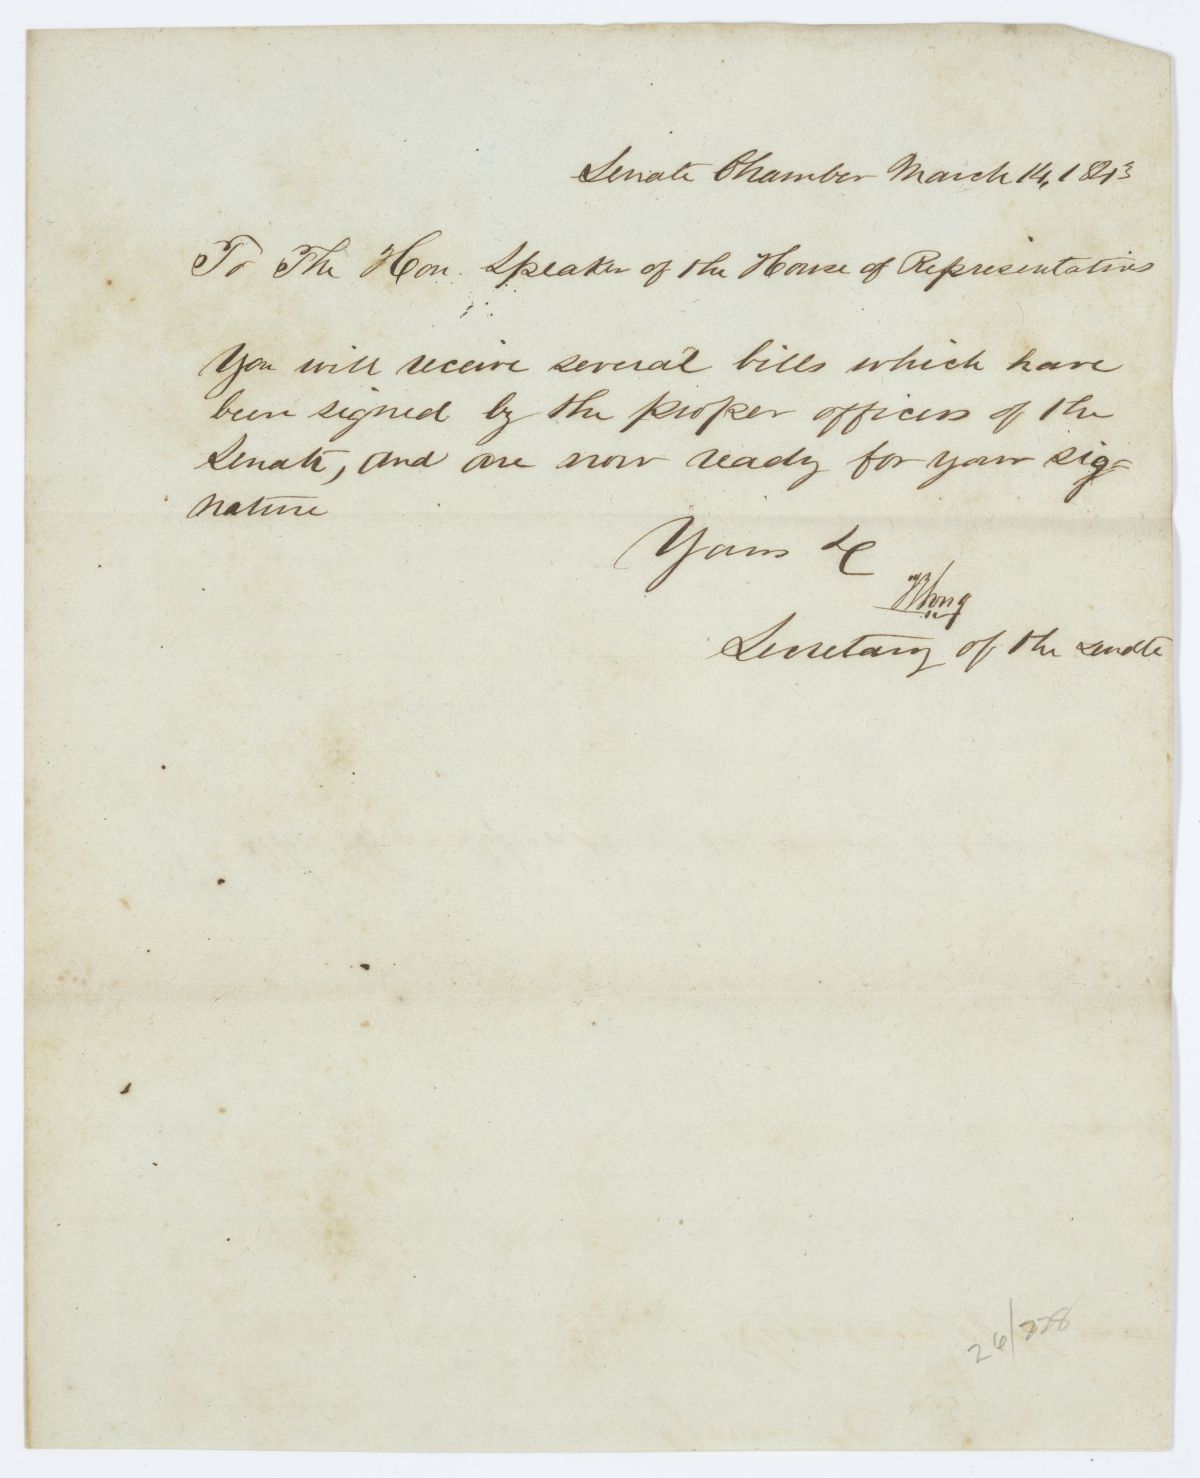 Senate Chamber March 14, 18
To The Hon. Speaker of the House of Representatives
You will receive several bills which have
been signed by the proper officers of the
Senate, and are now ready for your sig-
nature
Yours &c
Long
Secretary of the Senate
26/778